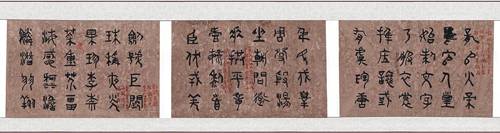 龍師火帝
鳥官人皇
始制文字
乃服衣裳
推位讓國
有虞陶唐
弔民伐罪
周發殷湯
坐朝問道
垂拱平章
愛育黎首
臣伏戎羌
劍號巨闕
珠稱夜光
果珍李柰
菜重芥薑
海鹹河淡
鱗潛羽翔